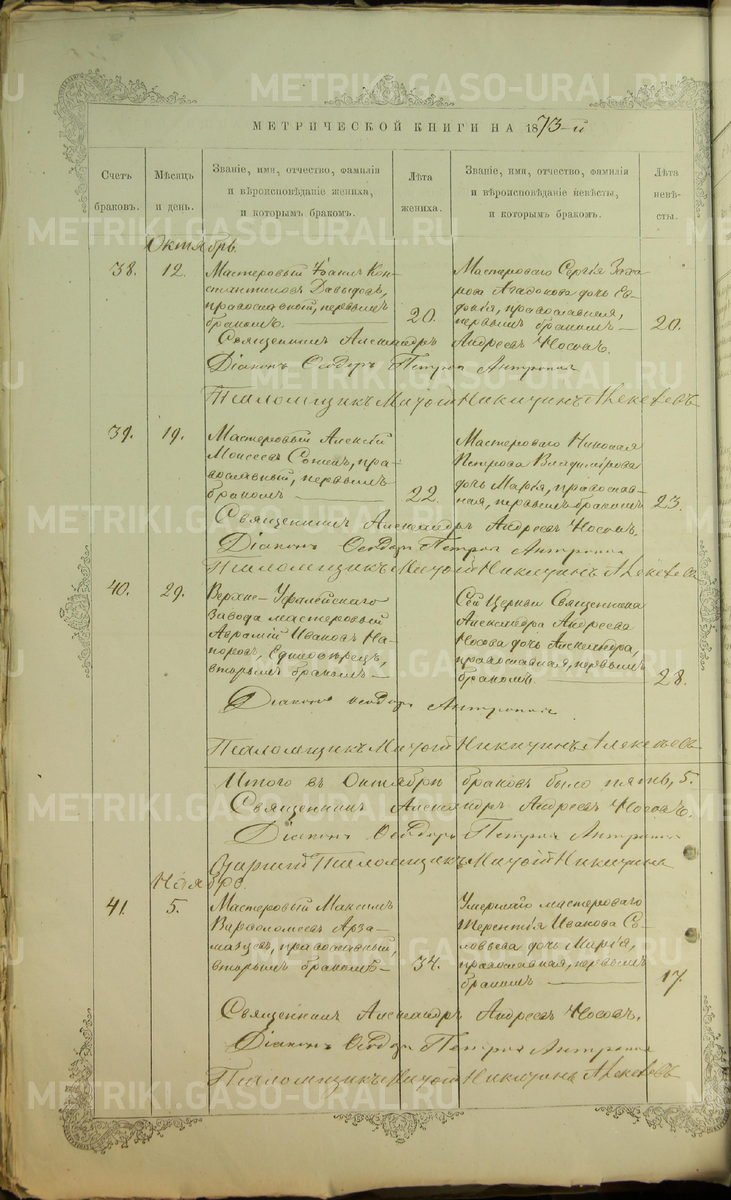 МЕТРИЧЕСКОЙ КНИГИ НА 1873-й
Счетъ браковъ.
Мѣсяцъ и день.
Званіе, имя, отчество, фамилія
и вѣроисповѣданіе жениха,
и которымъ бракомъ.
Лѣта жениха.
Званіе, имя, отчество, фамилія
и вѣроисповѣданіе невѣсты,
и которымъ бракомъ.
Лѣта невѣ-
сты.
Октябрь.
38. 12.
Мастеровый Іоаннъ Кон-
стантиновъ Давыдовъ,
православный, первымъ
бракомъ. 20.
Мастероваго Сергія Заха-
рова дочь Ев-
православная,
первымъ бракомъ 20.
Священникъ Александръ Андреевъ Носовъ.
Діаконъ Ѳеодоръ Петровъ
Псаломщикъ Никитинъ Алексѣевъ
39. 19.
Мастеровый Алексій
Моисеевъ пра-
вославный, первымъ
бракомъ 22.
Мастероваго Николая
Петрова Владимірова
дочь Марія, православ-
ная, первымъ бракомъ 23.
Священникъ Александръ Андреевъ Носовъ.
Діаконъ Ѳеодоръ Петровъ
Псаломщикъ Никитинъ Алексѣевъ
40. 29.
Верхне-Уфалейскаго
Завода мастеровый
Аврамій Ивановъ На-
поровъ, Единовѣрецъ,
вторымъ бракомъ
Сей Церкви Священника
Александра Андреева
Носова дочь Александра,
православная, первымъ
бракомъ. 28.
Діаконъ Ѳеодоръ
Псаломщикъ Никитинъ Алексѣевъ
Итого въ Октябрѣ браковъ было пять, 5.
Священникъ Александръ Андреевъ Носовъ.
Діаконъ Ѳеодоръ Петровъ
Псаломщикъ Никитинъ
Ноябрь.
41. 5.
Мастеровый Максимъ
Варѳоломеевъ Арза-
масцевъ, православный,
вторымъ бракомъ 34.
Умершаго мастероваго
Терентія Иванова Со-
ловьева дочь Марія,
православная, первымъ
бракомъ 17.
Священникъ Александръ Андреевъ Носовъ.
Діаконъ Ѳеодоръ Петровъ
Псаломщикъ Никитинъ Алексѣевъ
METRIKI.GASO-URAL.RU